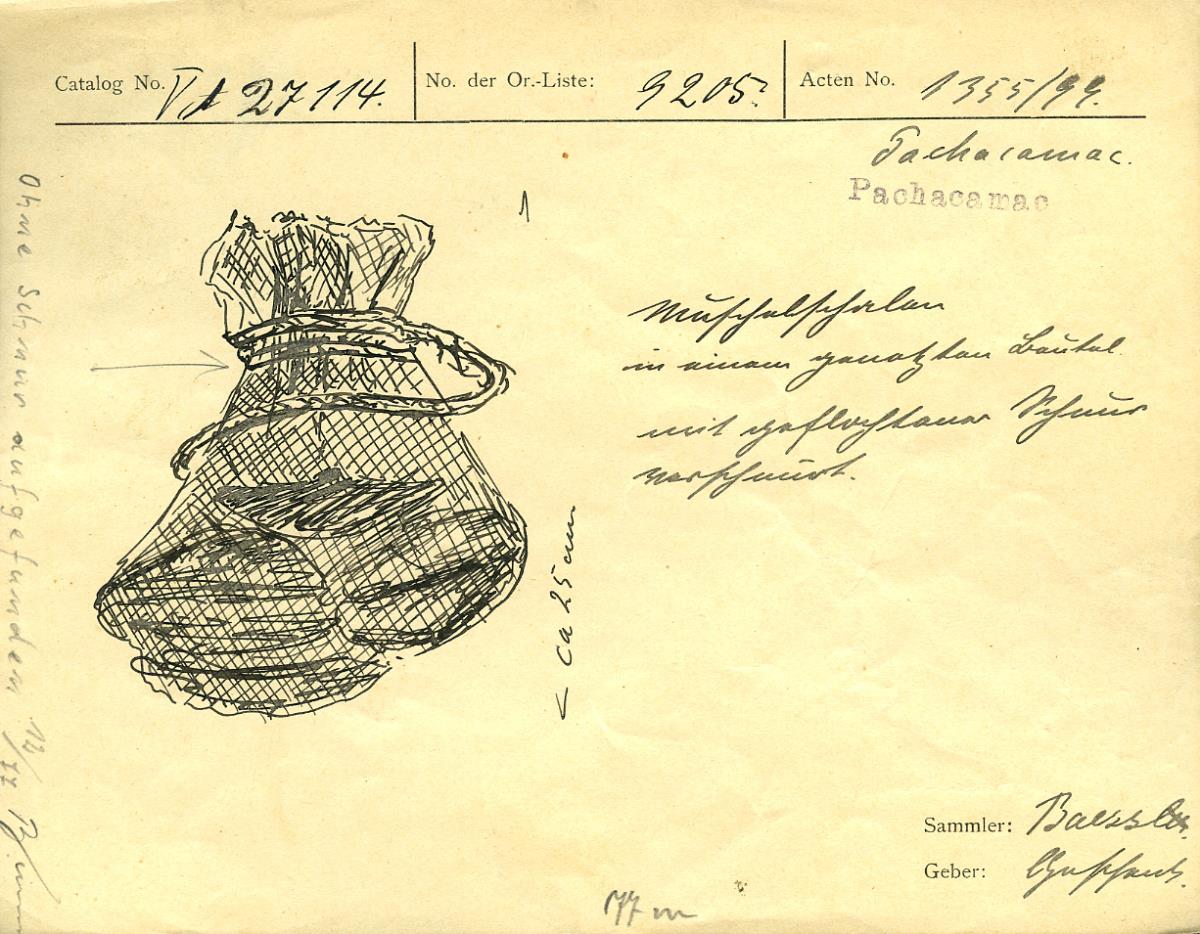 Catalog No. VA 27114.
No. der Or.-Liste: 9205.
Acten No. 1355/99.
Pachacamac.
Pachacamac
Muschelschalen
in einem genetzten Beutel
mit geflochtener Schnur
verschnürt.
ca 25 cm
Ohne Schnur aufgefunden 12/77
Sammler: Baessler.
Geber: Geschenk.